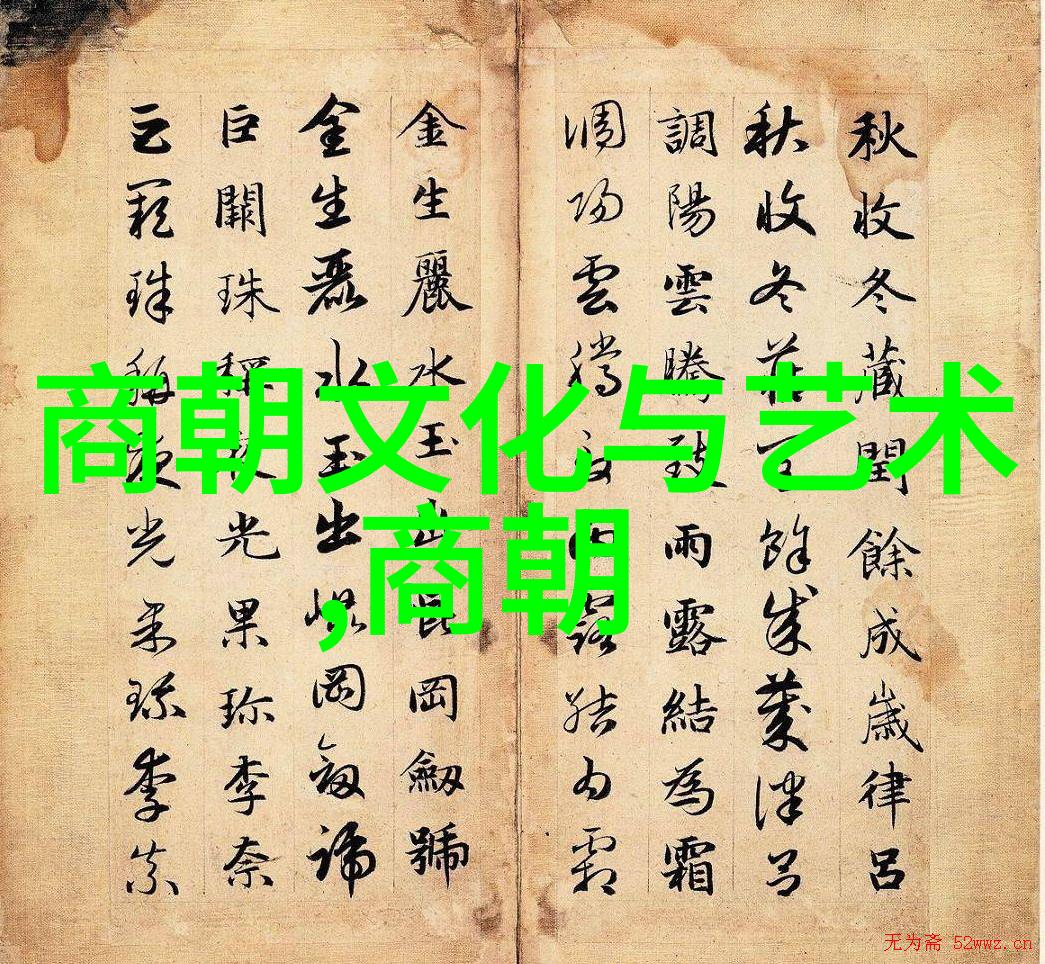 商朝文化与艺术
,商朝
秋收冬藏閏餘成歲律呂
秋收冬藏閏餘成歲律呂
調陽雲騰致雨露結為霜
調陽雲騰致雨露結為霜
金生麗水玉出崑岡劔號
金生麗水玉出崑岡劔號
巨闕珠稱夜光果珎李柰
巨闕珠稱夜光果珎李柰
无为斋 52wwz.cn